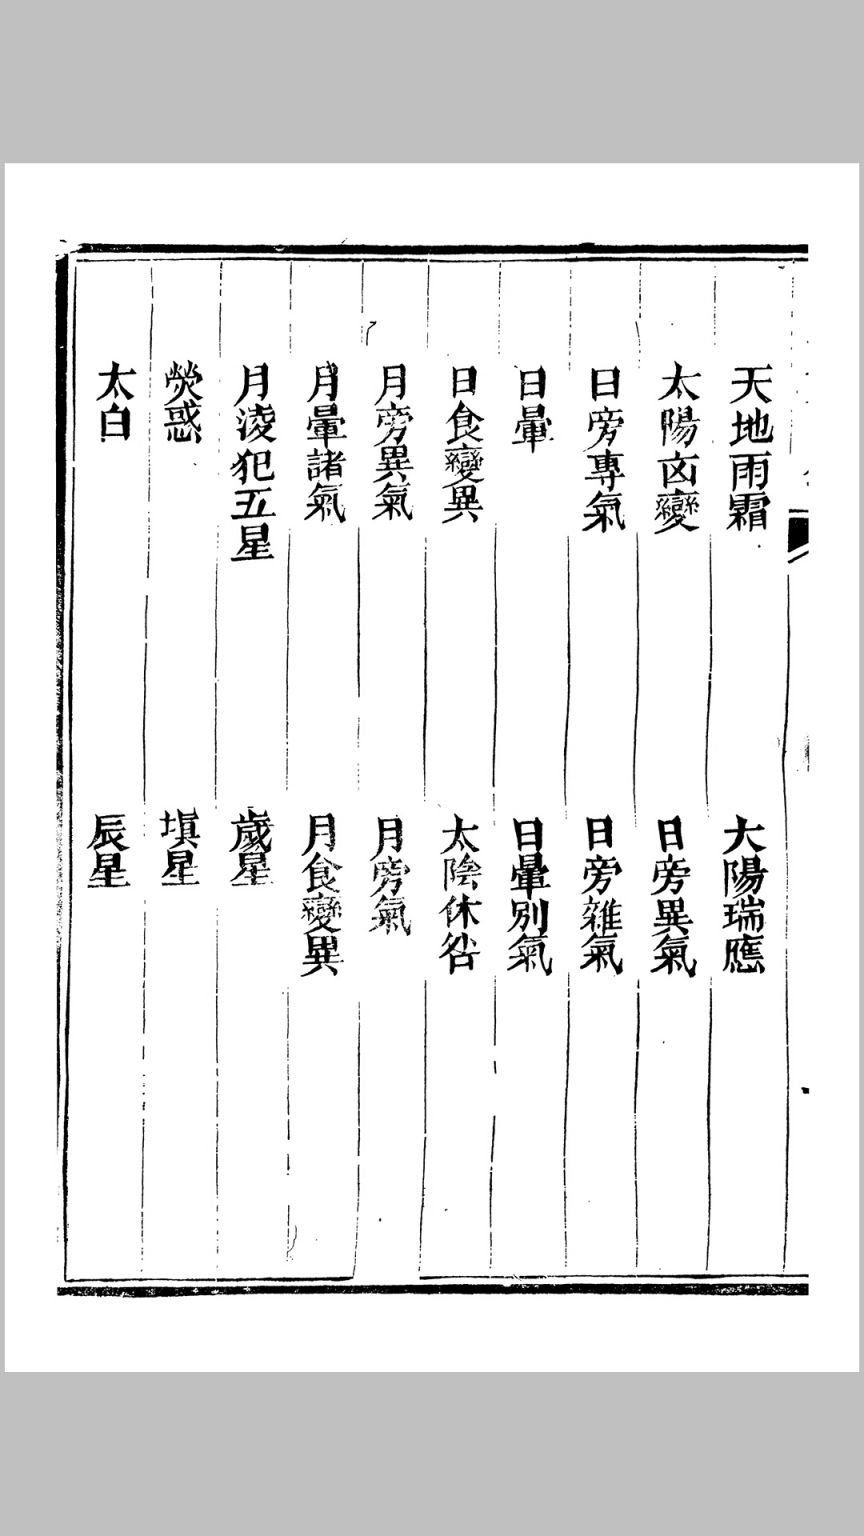 天地雨霜
大陽瑞應
太陽凶變
日旁異氣
日旁專氣
日旁雜氣
日暈
日暈別氣
日食變異
太陰休咎
月旁異氣
月旁氣
月暈諸氣
月食變異
月淩犯五星
歲星
熒惑
填星
太白
辰星